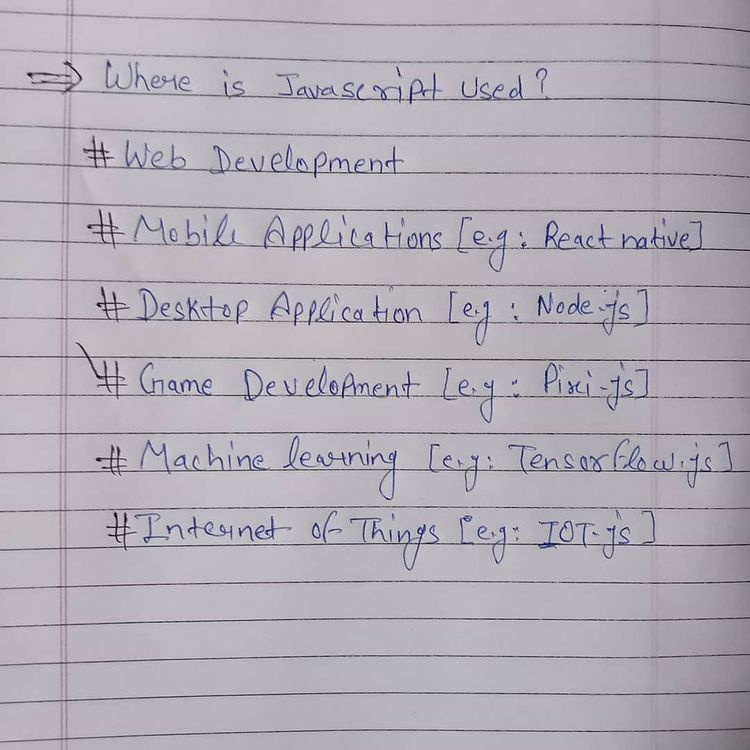 ⇒ Where is Javascript Used?
# Web Development
# Mobile Applications [e.g: React native]
# Desktop Application [e.g : Node.js]
# Game Development [e.g : Pixi-js]
# Machine learning [e.g: Tensorflow.js]
# Internet of Things [e.g: IOT-js]